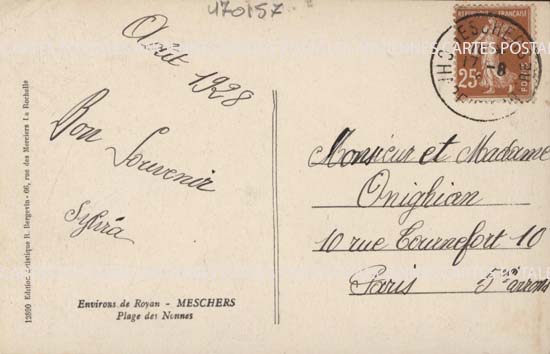 470157
Août 1928
Bon
Souvenir
Sylvia
12890 Edition Artistique R. Bergevin - 66, rue des Merciers La Rochelle
Environs de Royan - MESCHERS
Plage des Nonnes
RÉPUBLIQUE FRANÇAISE
25c
MESCHERS
17 -8
Monsieur et Madame
Onighian
10 rue Tournefort 10
Paris 5e arrond
CARTES POSTALES